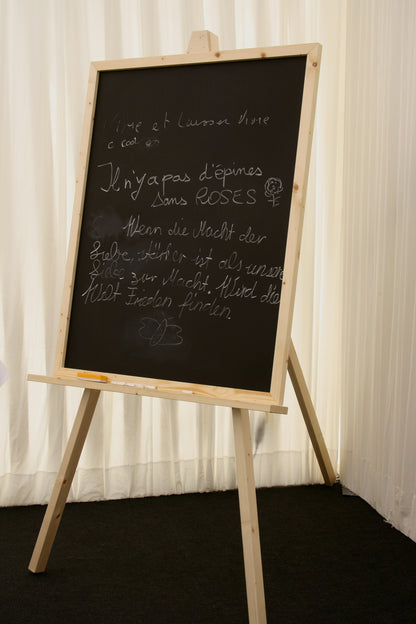 Vivre et laisser vivre
Il n'y a pas d'épines
sans ROSES
Wenn die Macht der
Liebe, stärker ist als unsere
Liebe zur Macht. Wird die
Welt Frieden finden.